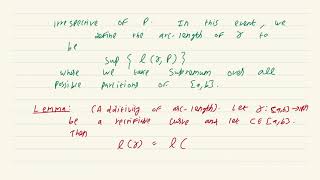 irrespective of P. In this event, we
define the arc-length of γ to
be
Sup { l(γ, P) }
where we take Supremum over all
possible partitions of [a,b].
Lemma: (Additivity of arc-length). Let γ: [a,b] → ℝⁿ
be a rectifiable curve and let c ∈ [a,b].
Then
l(γ) = l(